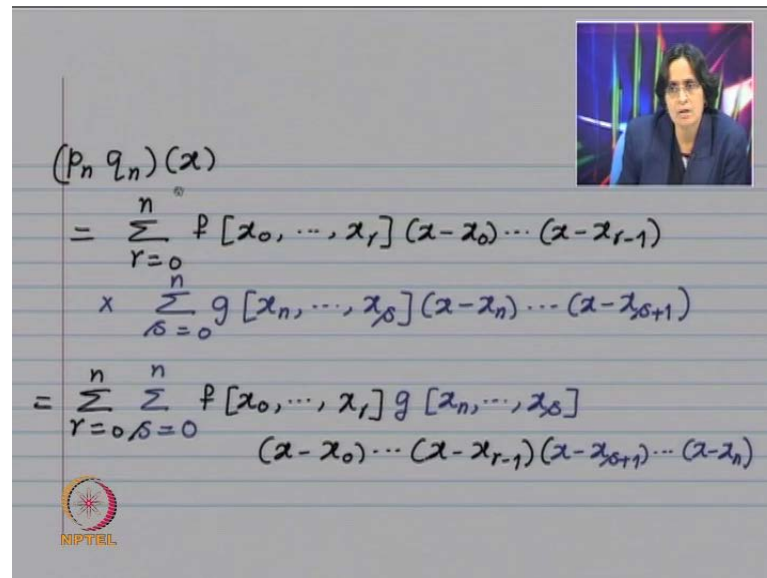 (pₙ qₙ)(x)
= Σ_{r=0}^{n} f[x₀, ..., x_r](x-x₀)...(x-x_{r-1})
× Σ_{s=0}^{n} g[xₙ, ..., x_s](x-xₙ)...(x-x_{s+1})
= Σ_{r=0}^{n} Σ_{s=0}^{n} f[x₀, ..., x_r] g[xₙ, ..., x_s]
(x-x₀)...(x-x_{r-1})(x-x_{s+1})...(x-xₙ)
NPTEL